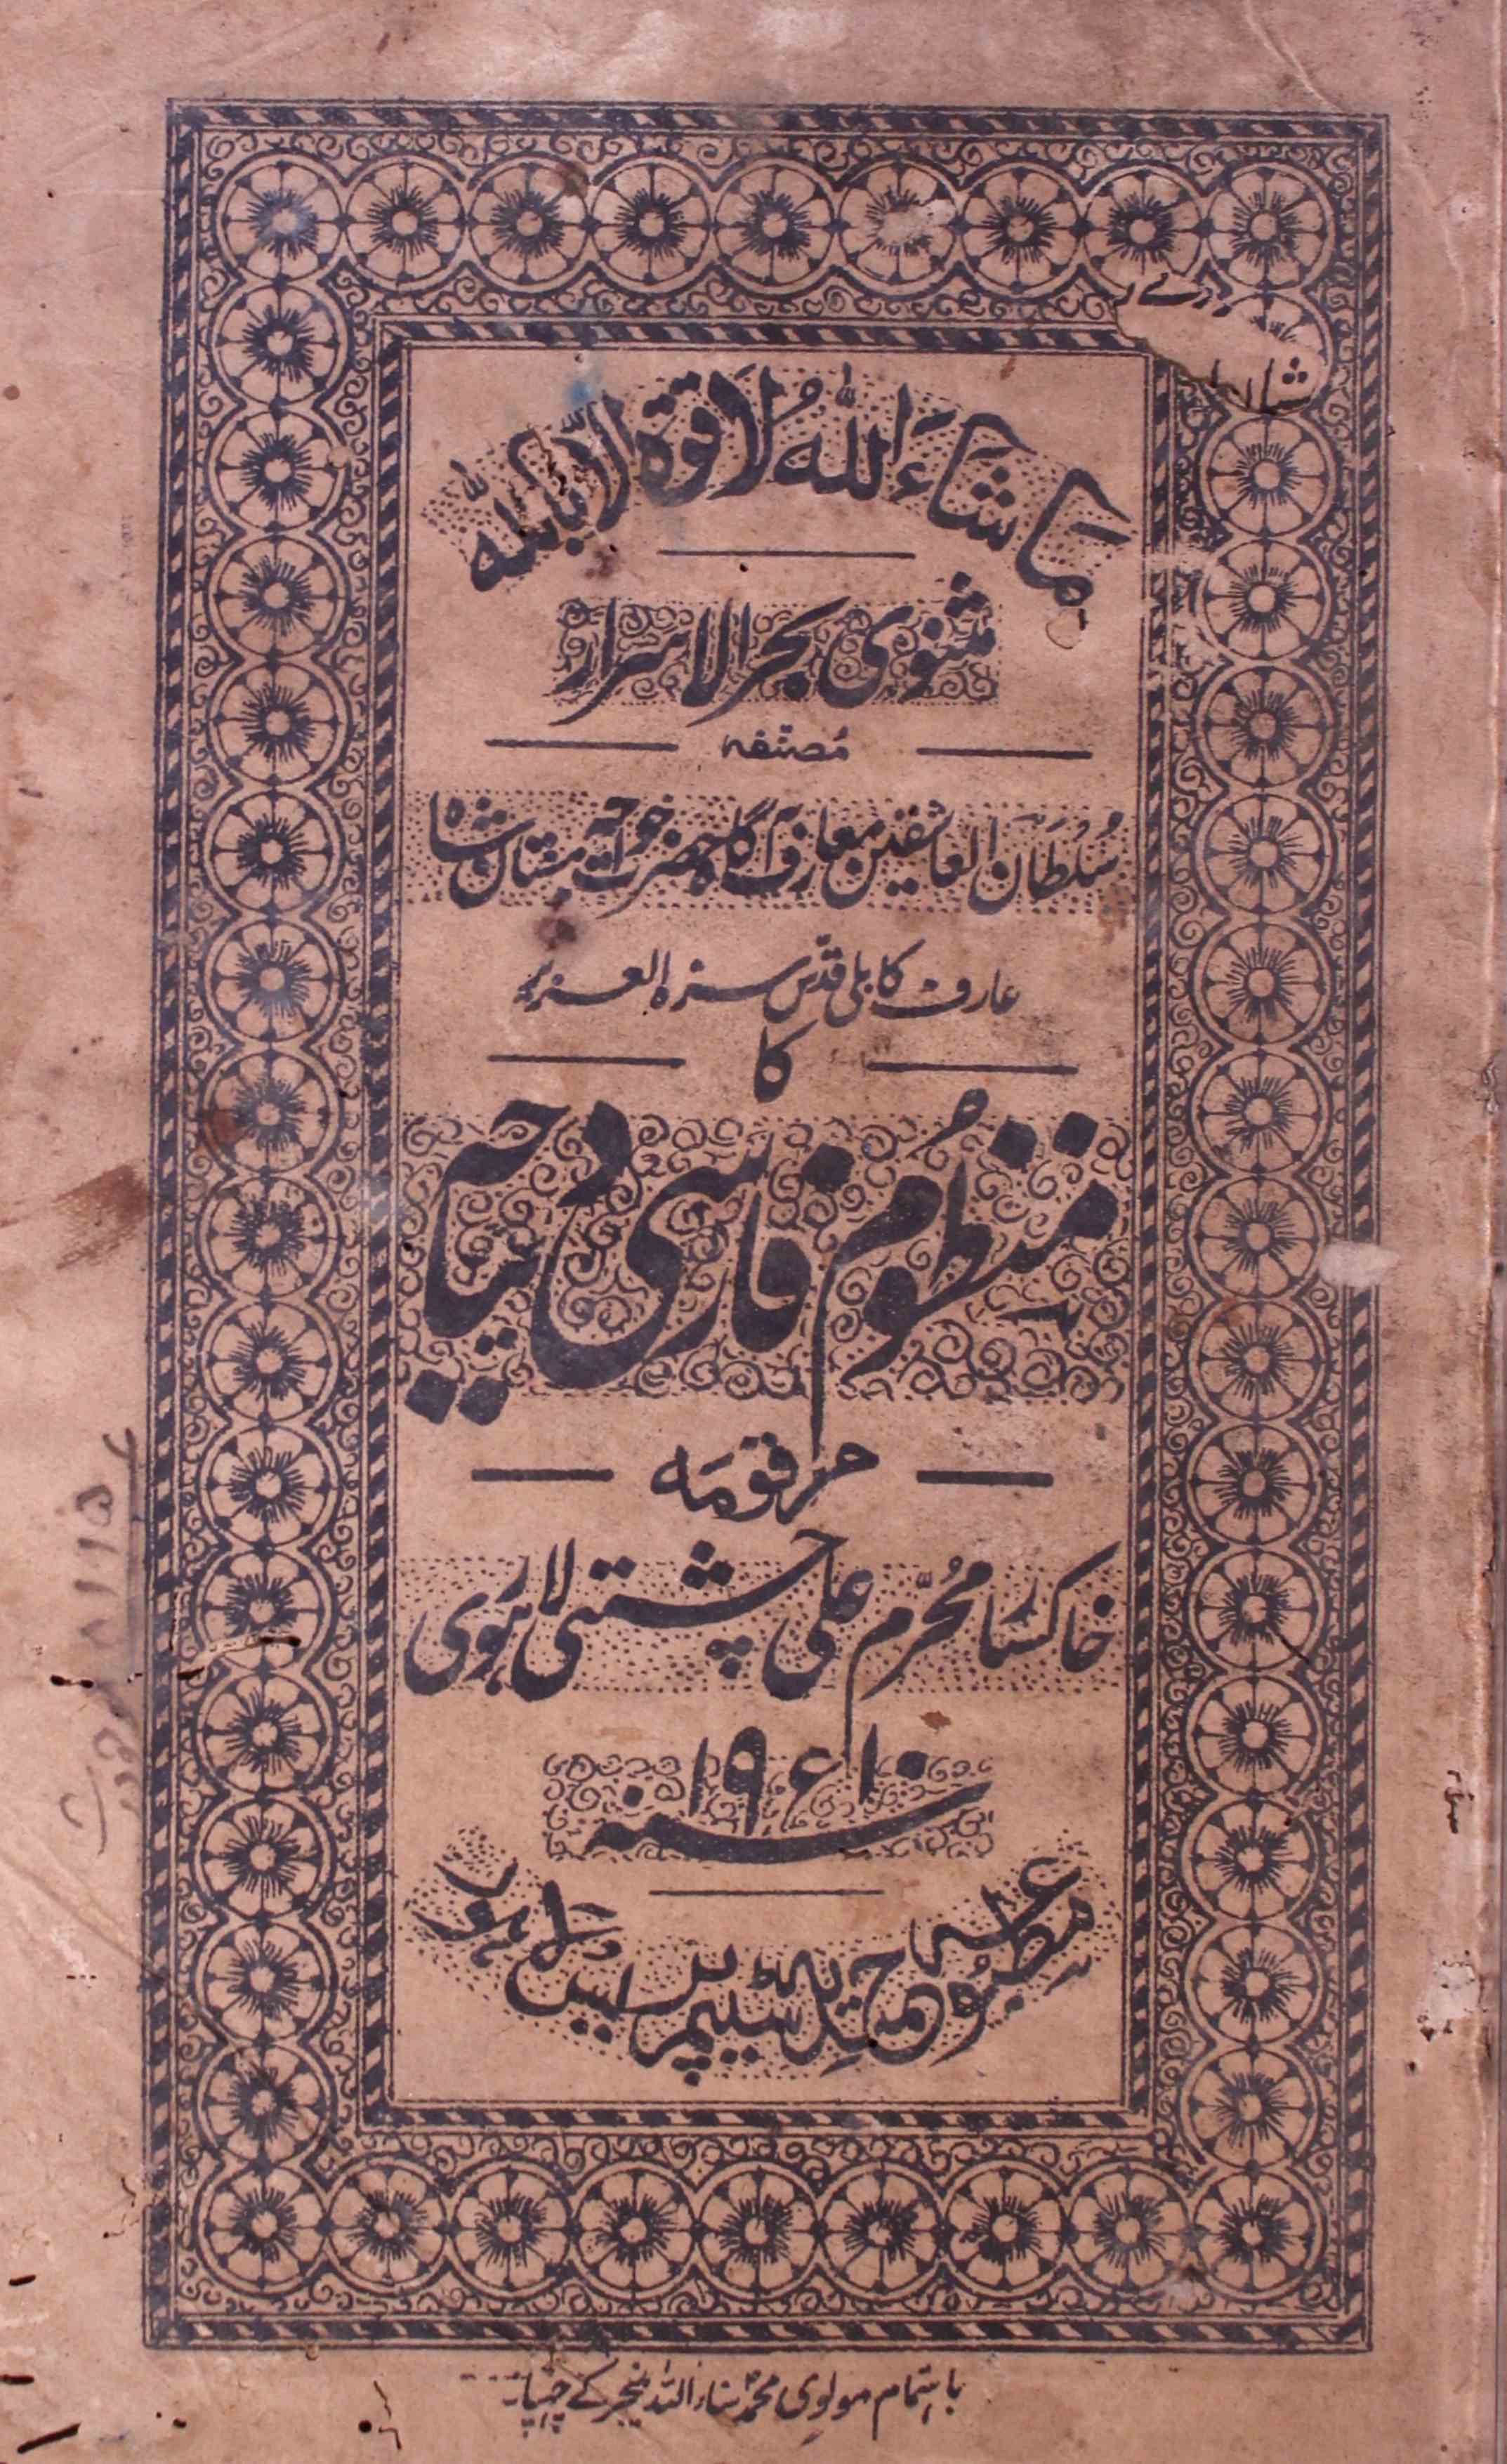 ماشاءَ اللہُ لا قوۃ الا باللہ
مثنوی بحر الاسرار
مُصنّفہ
سُلطان العاشقین معارف آگاہ حضرت خواجہ مستان شاہ
عارف کابلی قدّس سرہ العزیز
کا
منظوم فارسی دیباچہ
مرقومہ
خاکسار محرّم علی چشتی لاہوری
سنہ ۱۹۱۰ء
مطبوعہ حمیدیہ سٹیم پریس لاہور
باہتمام مولوی محمد ثناء اللہ منیجر کے چھپا